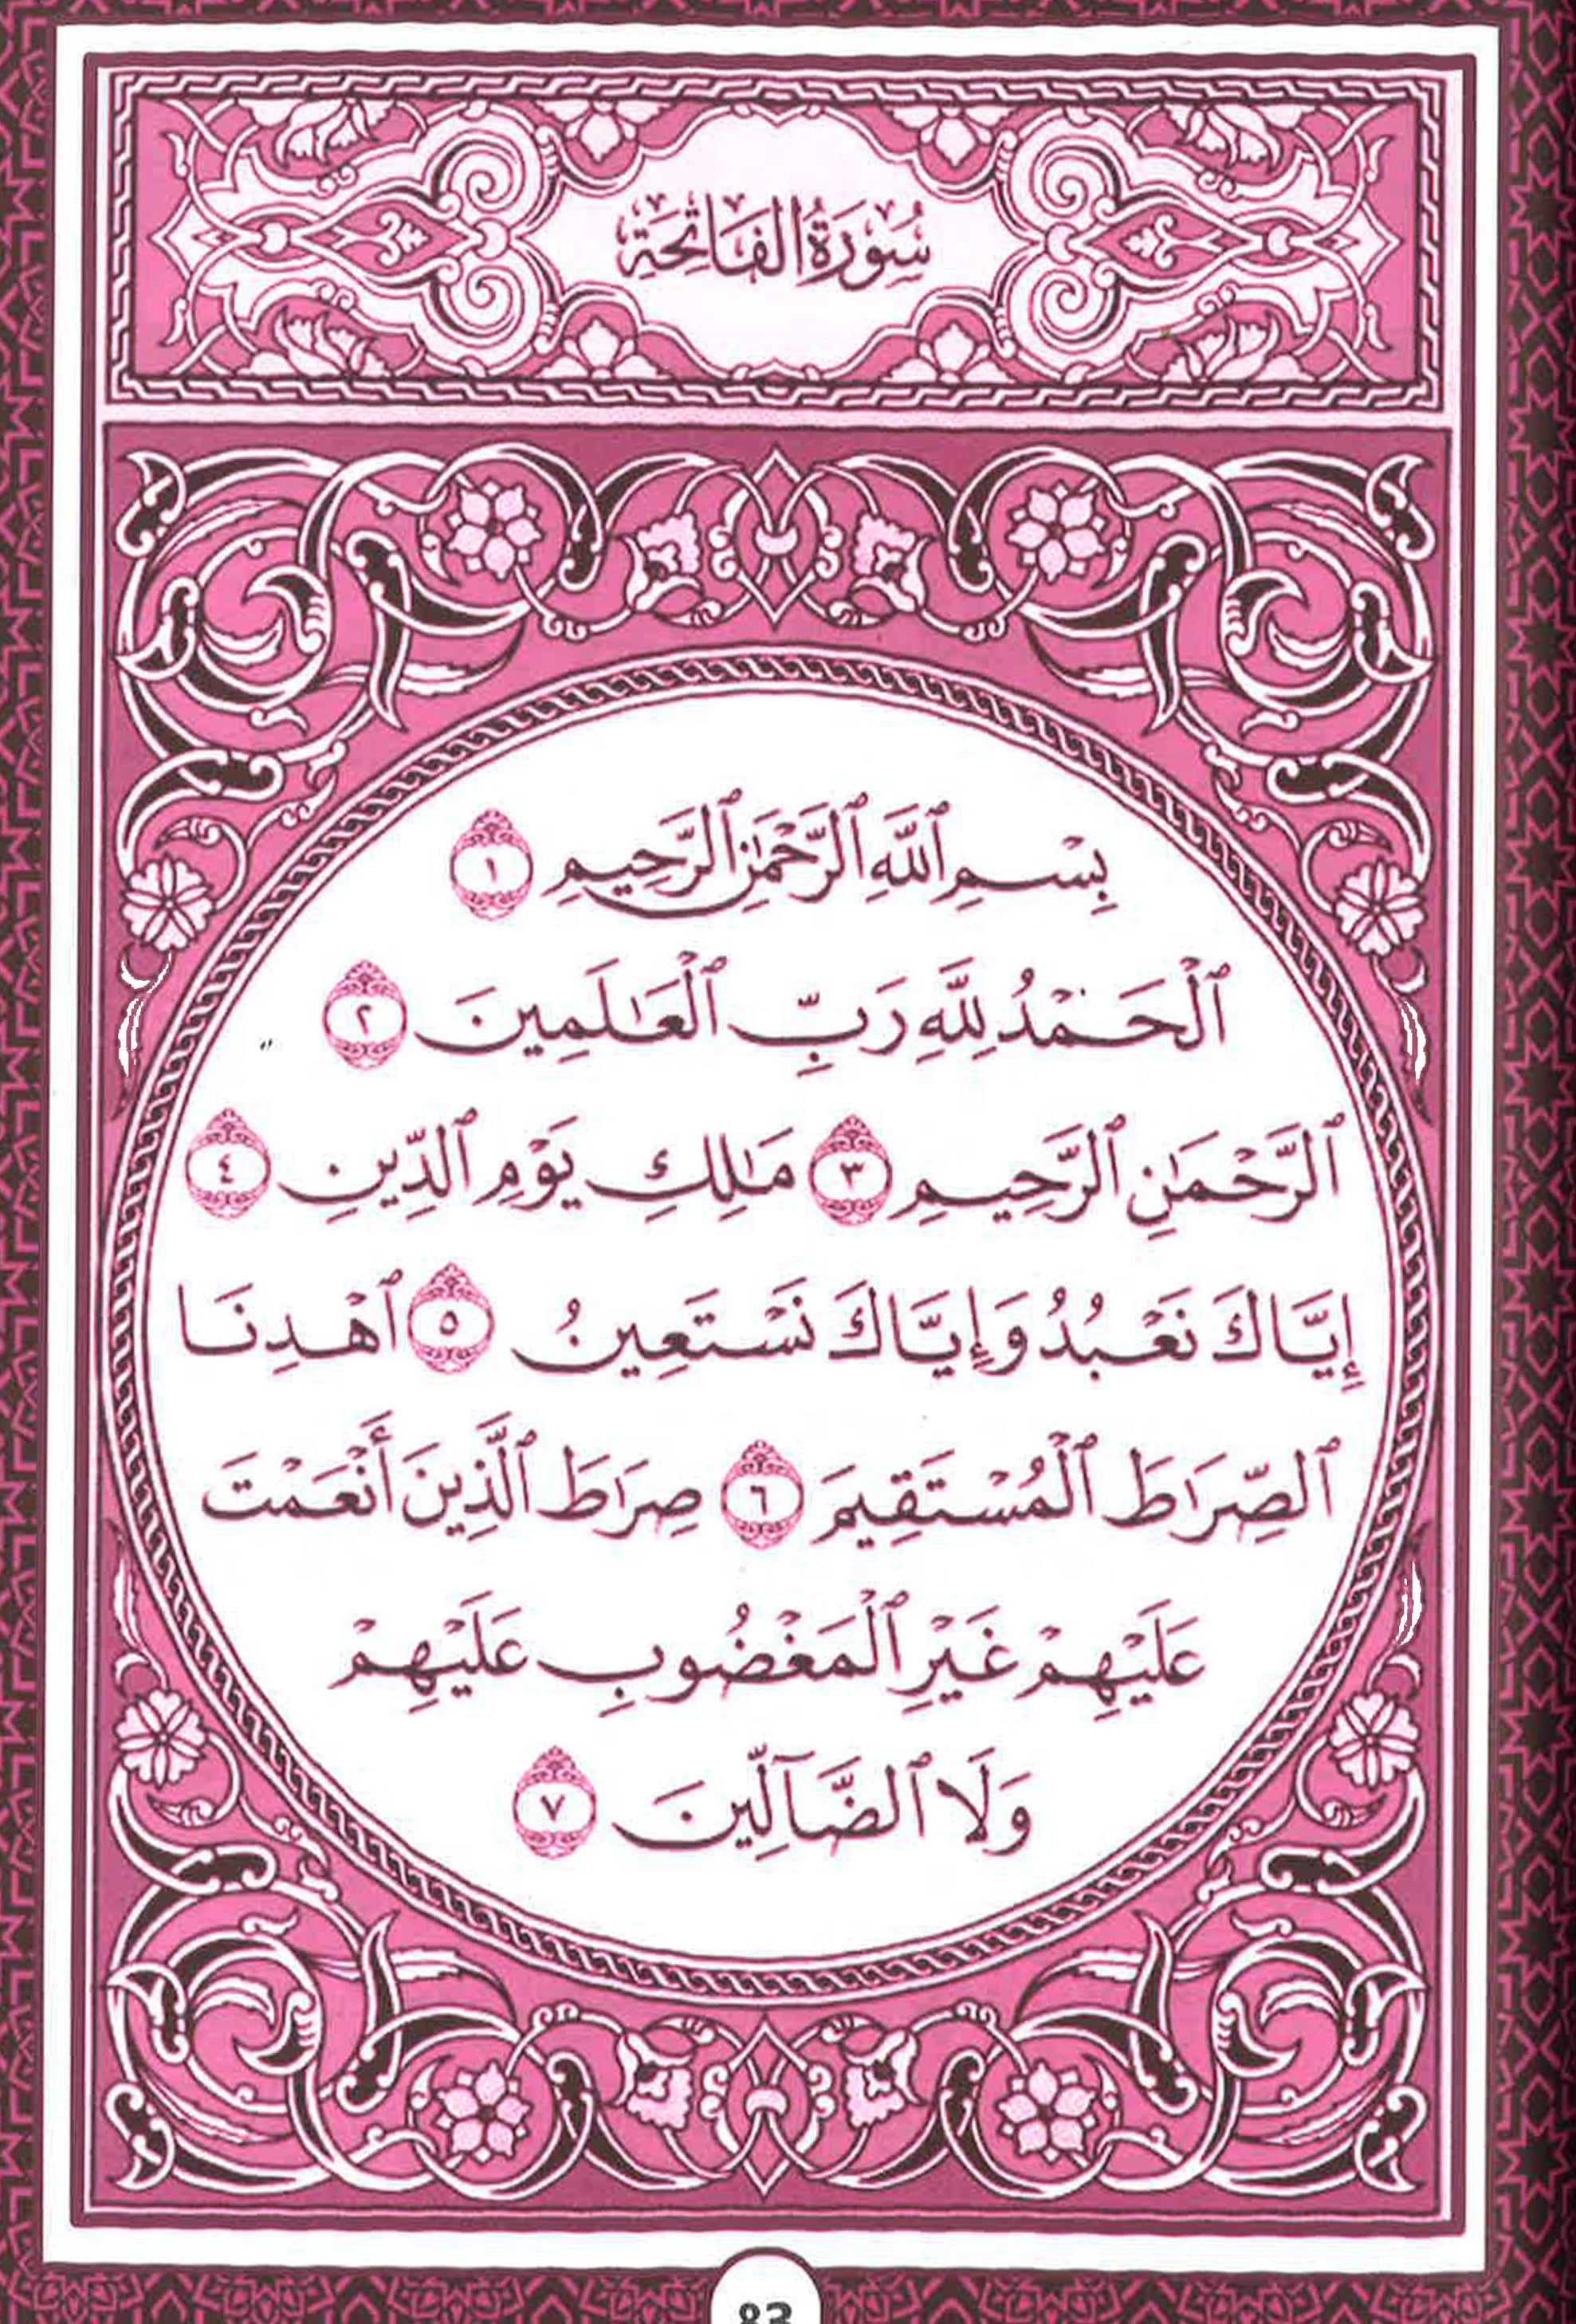 سُورَةُ الفَاتِحَةِ
بِسْمِ ٱللَّهِ ٱلرَّحْمَٰنِ ٱلرَّحِيمِ ١
ٱلْحَمْدُ لِلَّهِ رَبِّ ٱلْعَٰلَمِينَ ٢
ٱلرَّحْمَٰنِ ٱلرَّحِيمِ ٣ مَٰلِكِ يَوْمِ ٱلدِّينِ ٤
إِيَّاكَ نَعْبُدُ وَإِيَّاكَ نَسْتَعِينُ ٥ ٱهْدِنَا
ٱلصِّرَٰطَ ٱلْمُسْتَقِيمَ ٦ صِرَٰطَ ٱلَّذِينَ أَنْعَمْتَ
عَلَيْهِمْ غَيْرِ ٱلْمَغْضُوبِ عَلَيْهِمْ
وَلَا ٱلضَّآلِّينَ ٧
83